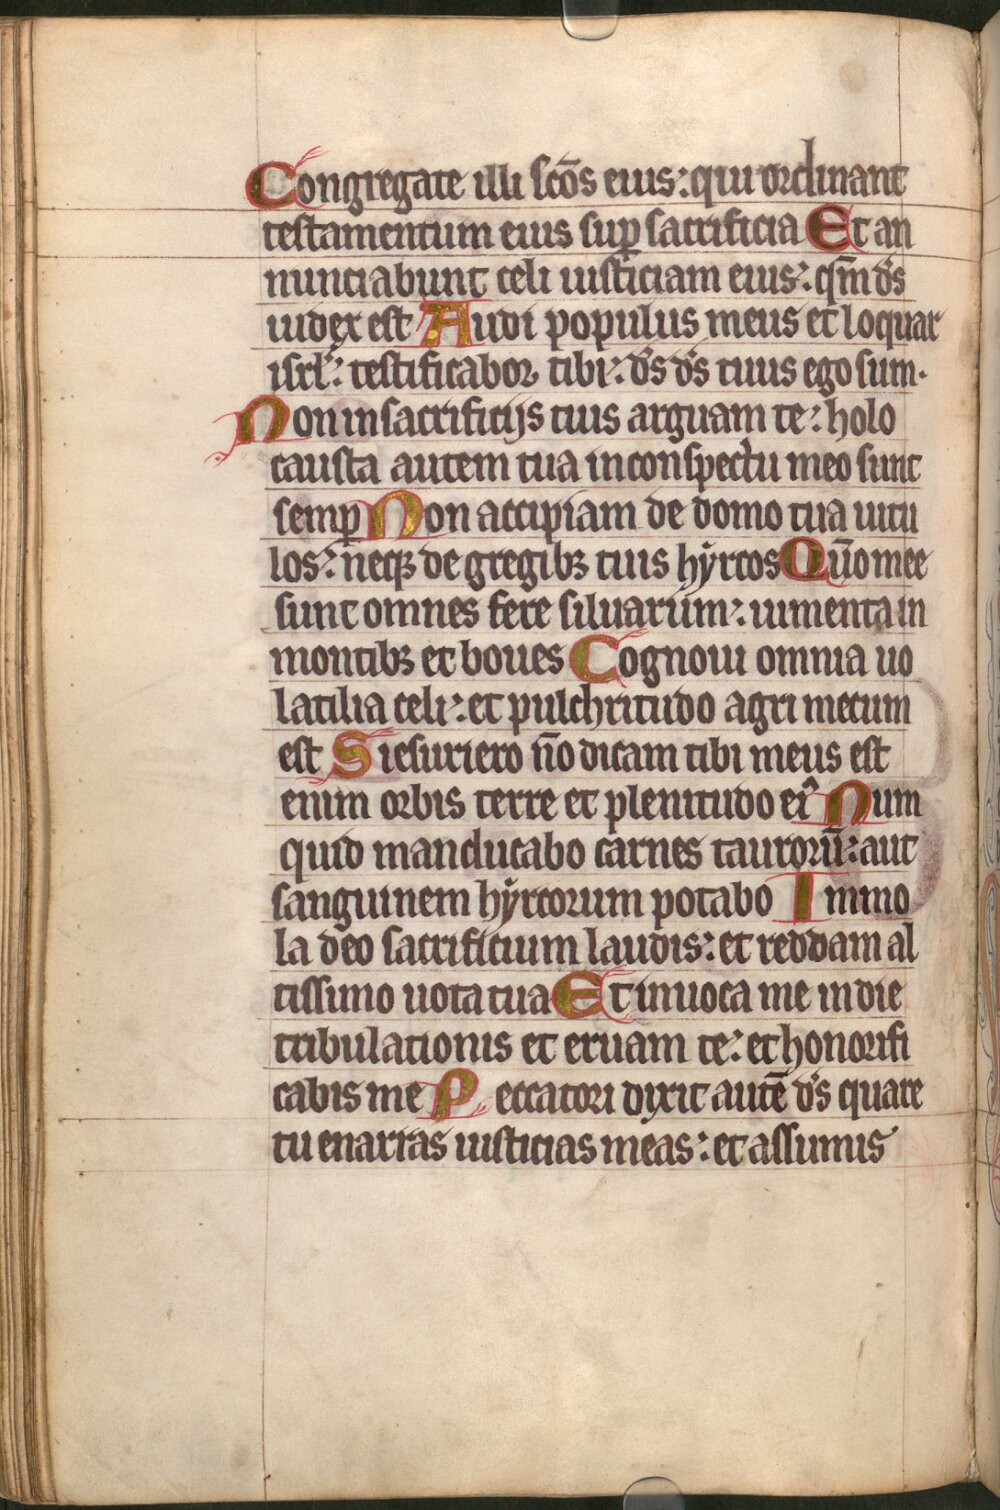 Congregate illi scōs eius: qui ordinant
testamentum eius suꝑ sacrificia Et an
nunciabunt celi iusticiam eius: qm̄ ds̄
iudex est Audi populus meus et loquar
isrl̄: testificabor tibi: ds̄ ds̄ tuus ego sum.
Non in sacrificijs tuis arguam te: holo
causta autem tua in conspectu meo sunt
semꝑ Non accipiam de domo tua uitu
los: neqꝫ de gregibꝫ tuis hẏrcos Qūo mee
sunt omnes fere siluarum: iumenta in
montibꝫ et boues Cognoui omnia uo
latilia celi: et pulchritudo agri mecum
est Si esuriero n̄o dicam tibi meus est
enim orbis terre et plenitudo ei᷒ Num
quid manducabo carnes taurorū: aut
sanguinem hẏrcorum potabo Immo
la deo sacrificium laudis: et reddam al
tissimo uota tua Et inuoca me in die
tribulationis et eruam te: et honorifi
cabis me Peccatori dixit autē ds̄ quare
tu enarras iusticias meas: et assumis